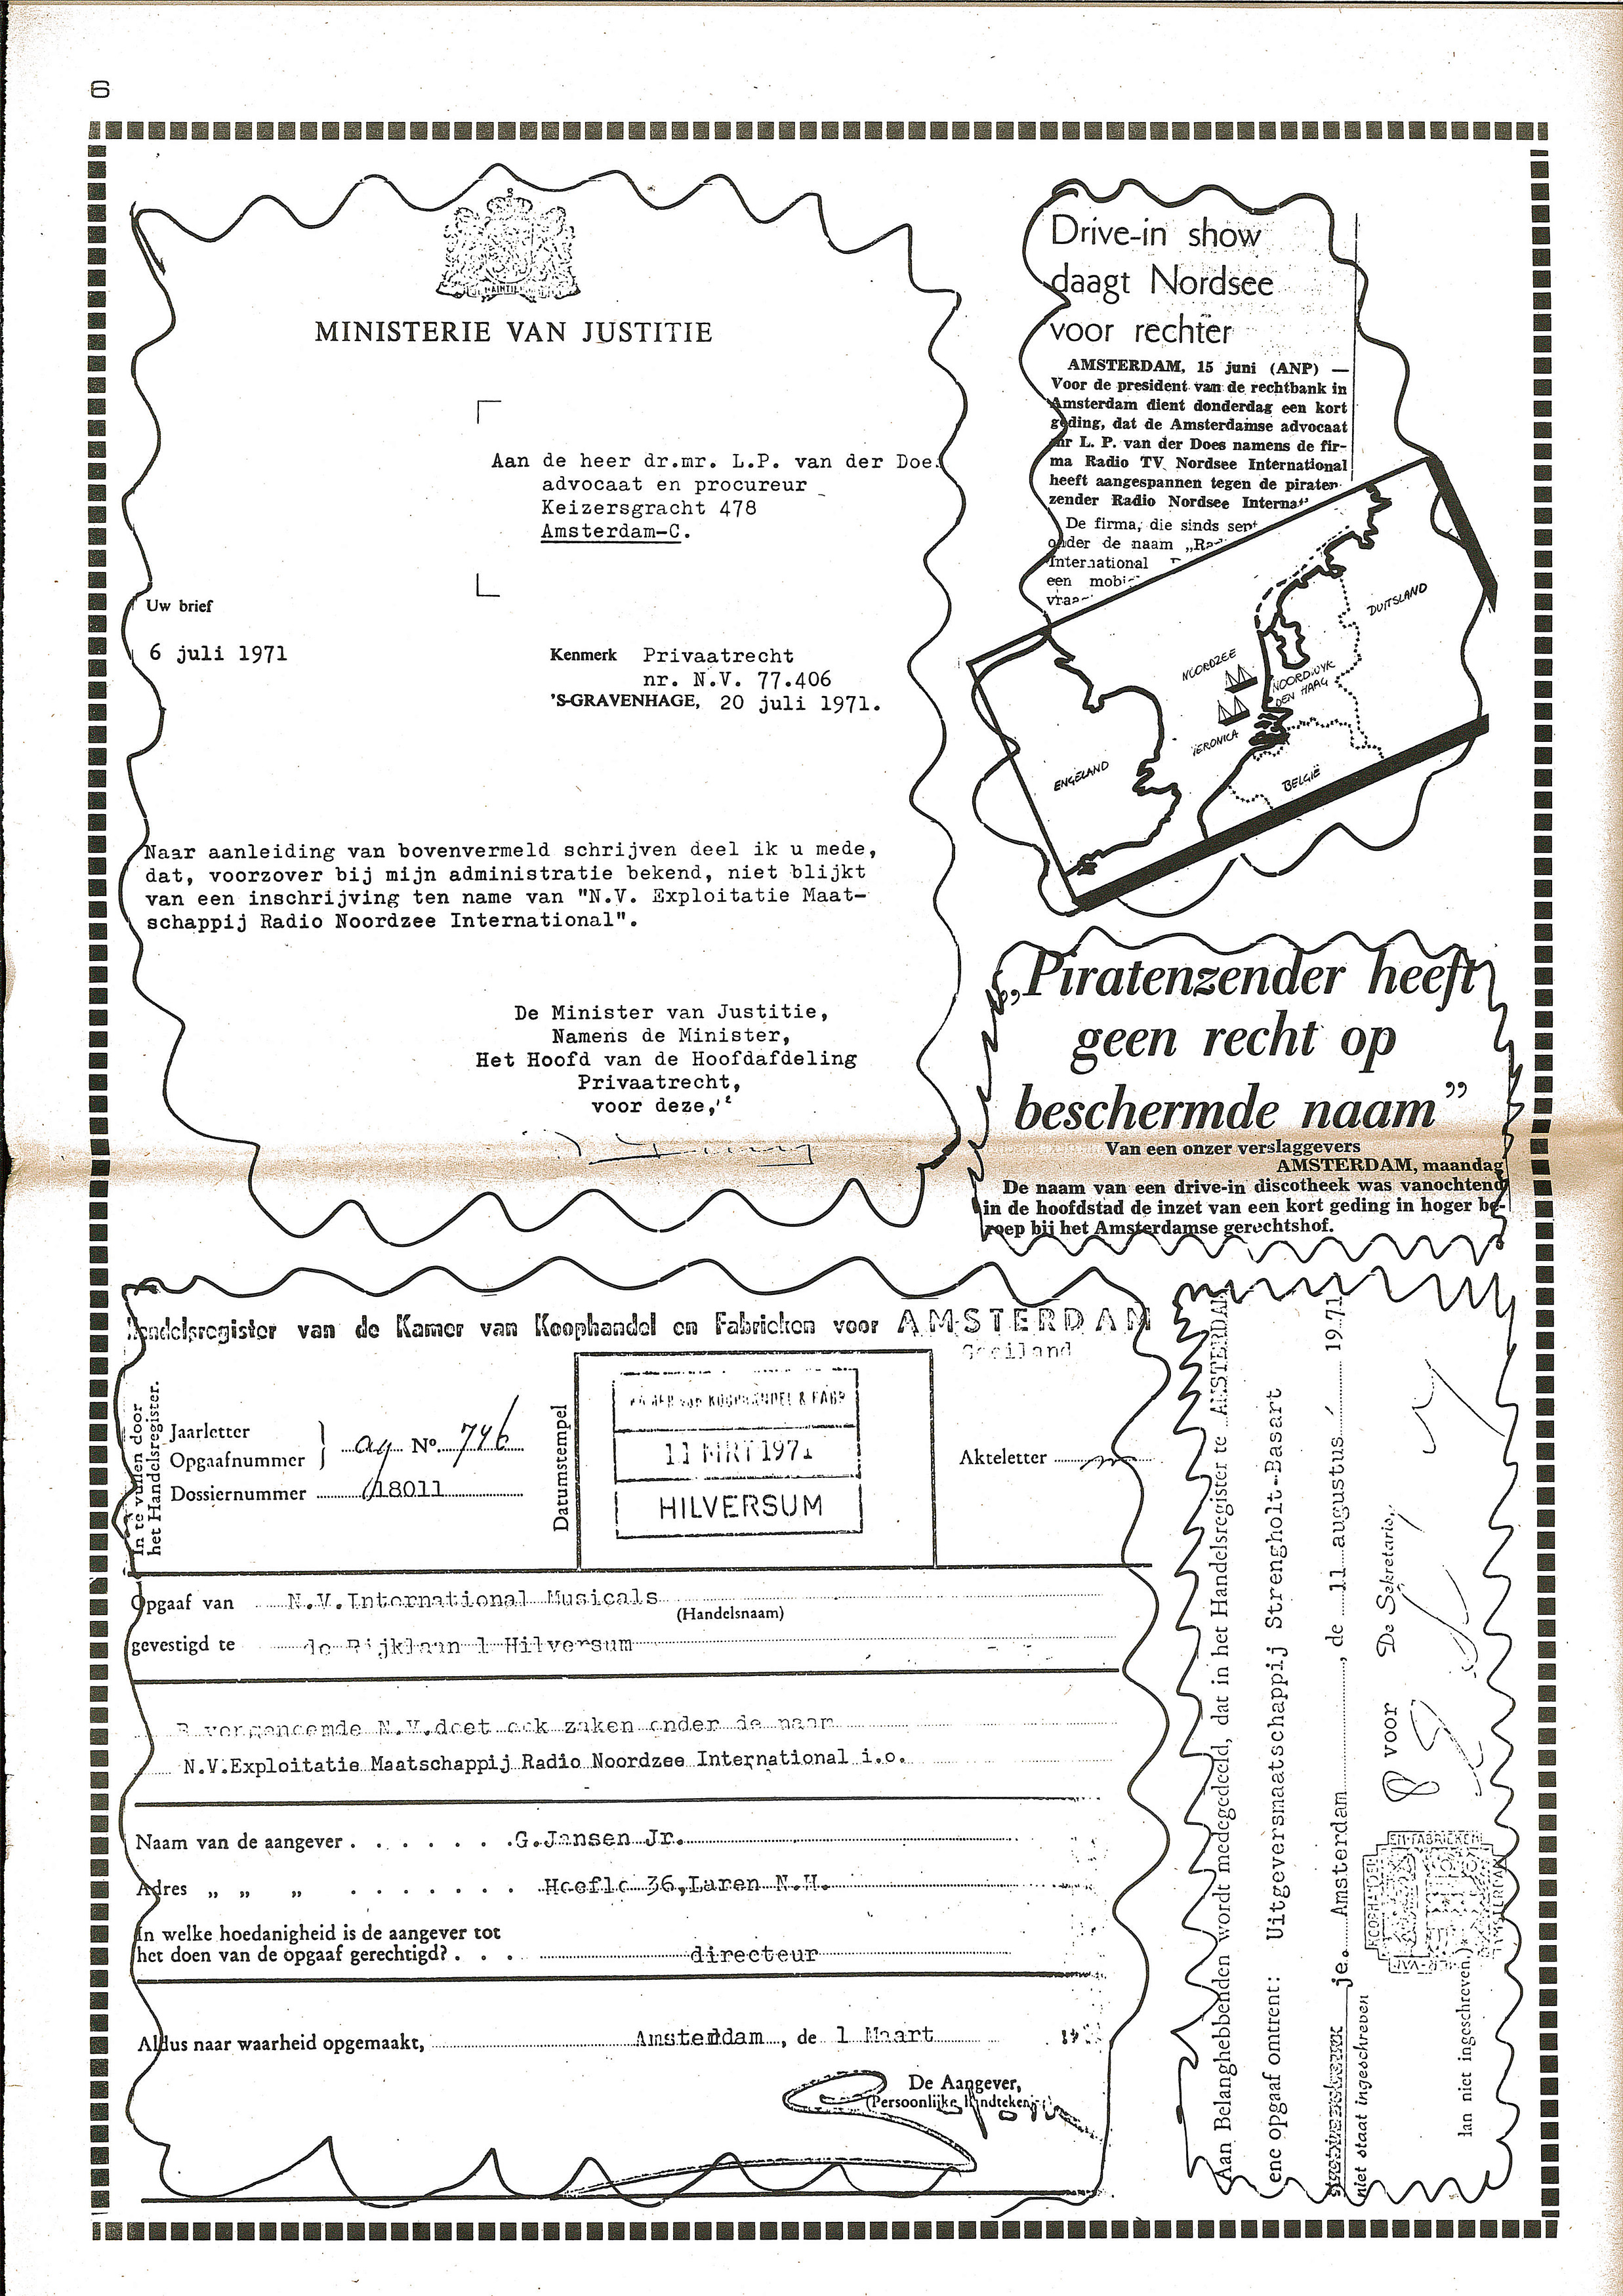 6
MINISTERIE VAN JUSTITIE
Aan de heer dr.mr. L.P. van der Doe
advocaat en procureur
Keizersgracht 478
Amsterdam-C.
Uw brief
6 juli 1971
Kenmerk Privaatrecht
nr. N.V. 77.406
'S-GRAVENHAGE, 20 juli 1971.
Naar aanleiding van bovenvermeld schrijven deel ik u mede,
dat, voorzover bij mijn administratie bekend, niet blijkt
van een inschrijving ten name van "N.V. Exploitatie Maat-
schappij Radio Noordzee International".
De Minister van Justitie,
Namens de Minister,
Het Hoofd van de Hoofdafdeling
Privaatrecht,
voor deze,
Drive-in show
daagt Nordsee
voor rechter
AMSTERDAM, 15 juni (ANP) —
Voor de president van de rechtbank in
Amsterdam dient donderdag een kort
geding, dat de Amsterdamse advocaat
mr L. P. van der Does namens de fir-
ma Radio TV Nordsee International
heeft aangespannen tegen de piraten-
zender Radio Nordsee Internat
De firma, die sinds sept
onder de naam „Rad
International
een mobi
vraa
DUITSLAND
NOORDZEE
NOORDWYK
DEN HAAG
VERONICA
ENGELAND
BELGIË
„Piratenzender heeft
geen recht op
beschermde naam”
Van een onzer verslaggevers
AMSTERDAM, maandag
De naam van een drive-in discotheek was vanochtend
in de hoofdstad de inzet van een kort geding in hoger be-
roep bij het Amsterdamse gerechtshof.
Handelsregister van de Kamer van Koophandel en Fabrieken voor AMSTERDAM
Gooiland
In te vullen door
het Handelsregister.
Jaarletter
Opgaafnummer } ag No. 746
Dossiernummer 18011
Datumstempel
KAMER van KOOPHANDEL & FABR
11 MRT 1971
HILVERSUM
Akteletter
Opgaaf van N.V.International Musicals
(Handelsnaam)
gevestigd te de Rijklaan 1 Hilversum
Bovengenoemde N.V.doet ook zaken onder de naam
N.V.Exploitatie Maatschappij Radio Noordzee International i.o.
Naam van de aangever . . . . . . . G.Jansen Jr.
Adres „ „ „ . . . . . . . Hoefle 36,Laren N.H.
In welke hoedanigheid is de aangever tot
het doen van de opgaaf gerechtigd? . . . directeur
Aldus naar waarheid opgemaakt, Amsterdam, de 1 Maart 19
De Aangever,
(Persoonlijke Handtekening)
Aan Belanghebbenden wordt medegedeeld, dat in het Handelsregister te AMSTERDAM
ene opgaaf omtrent: Uitgeversmaatschappij Strengholt-Basart
niet staat ingeschreven
je. Amsterdam, de 11 augustus 1971
voor De Sekretaris,
KOOPHANDEL EN FABRIEKEN AMSTERDAM
lan niet ingeschreven.)